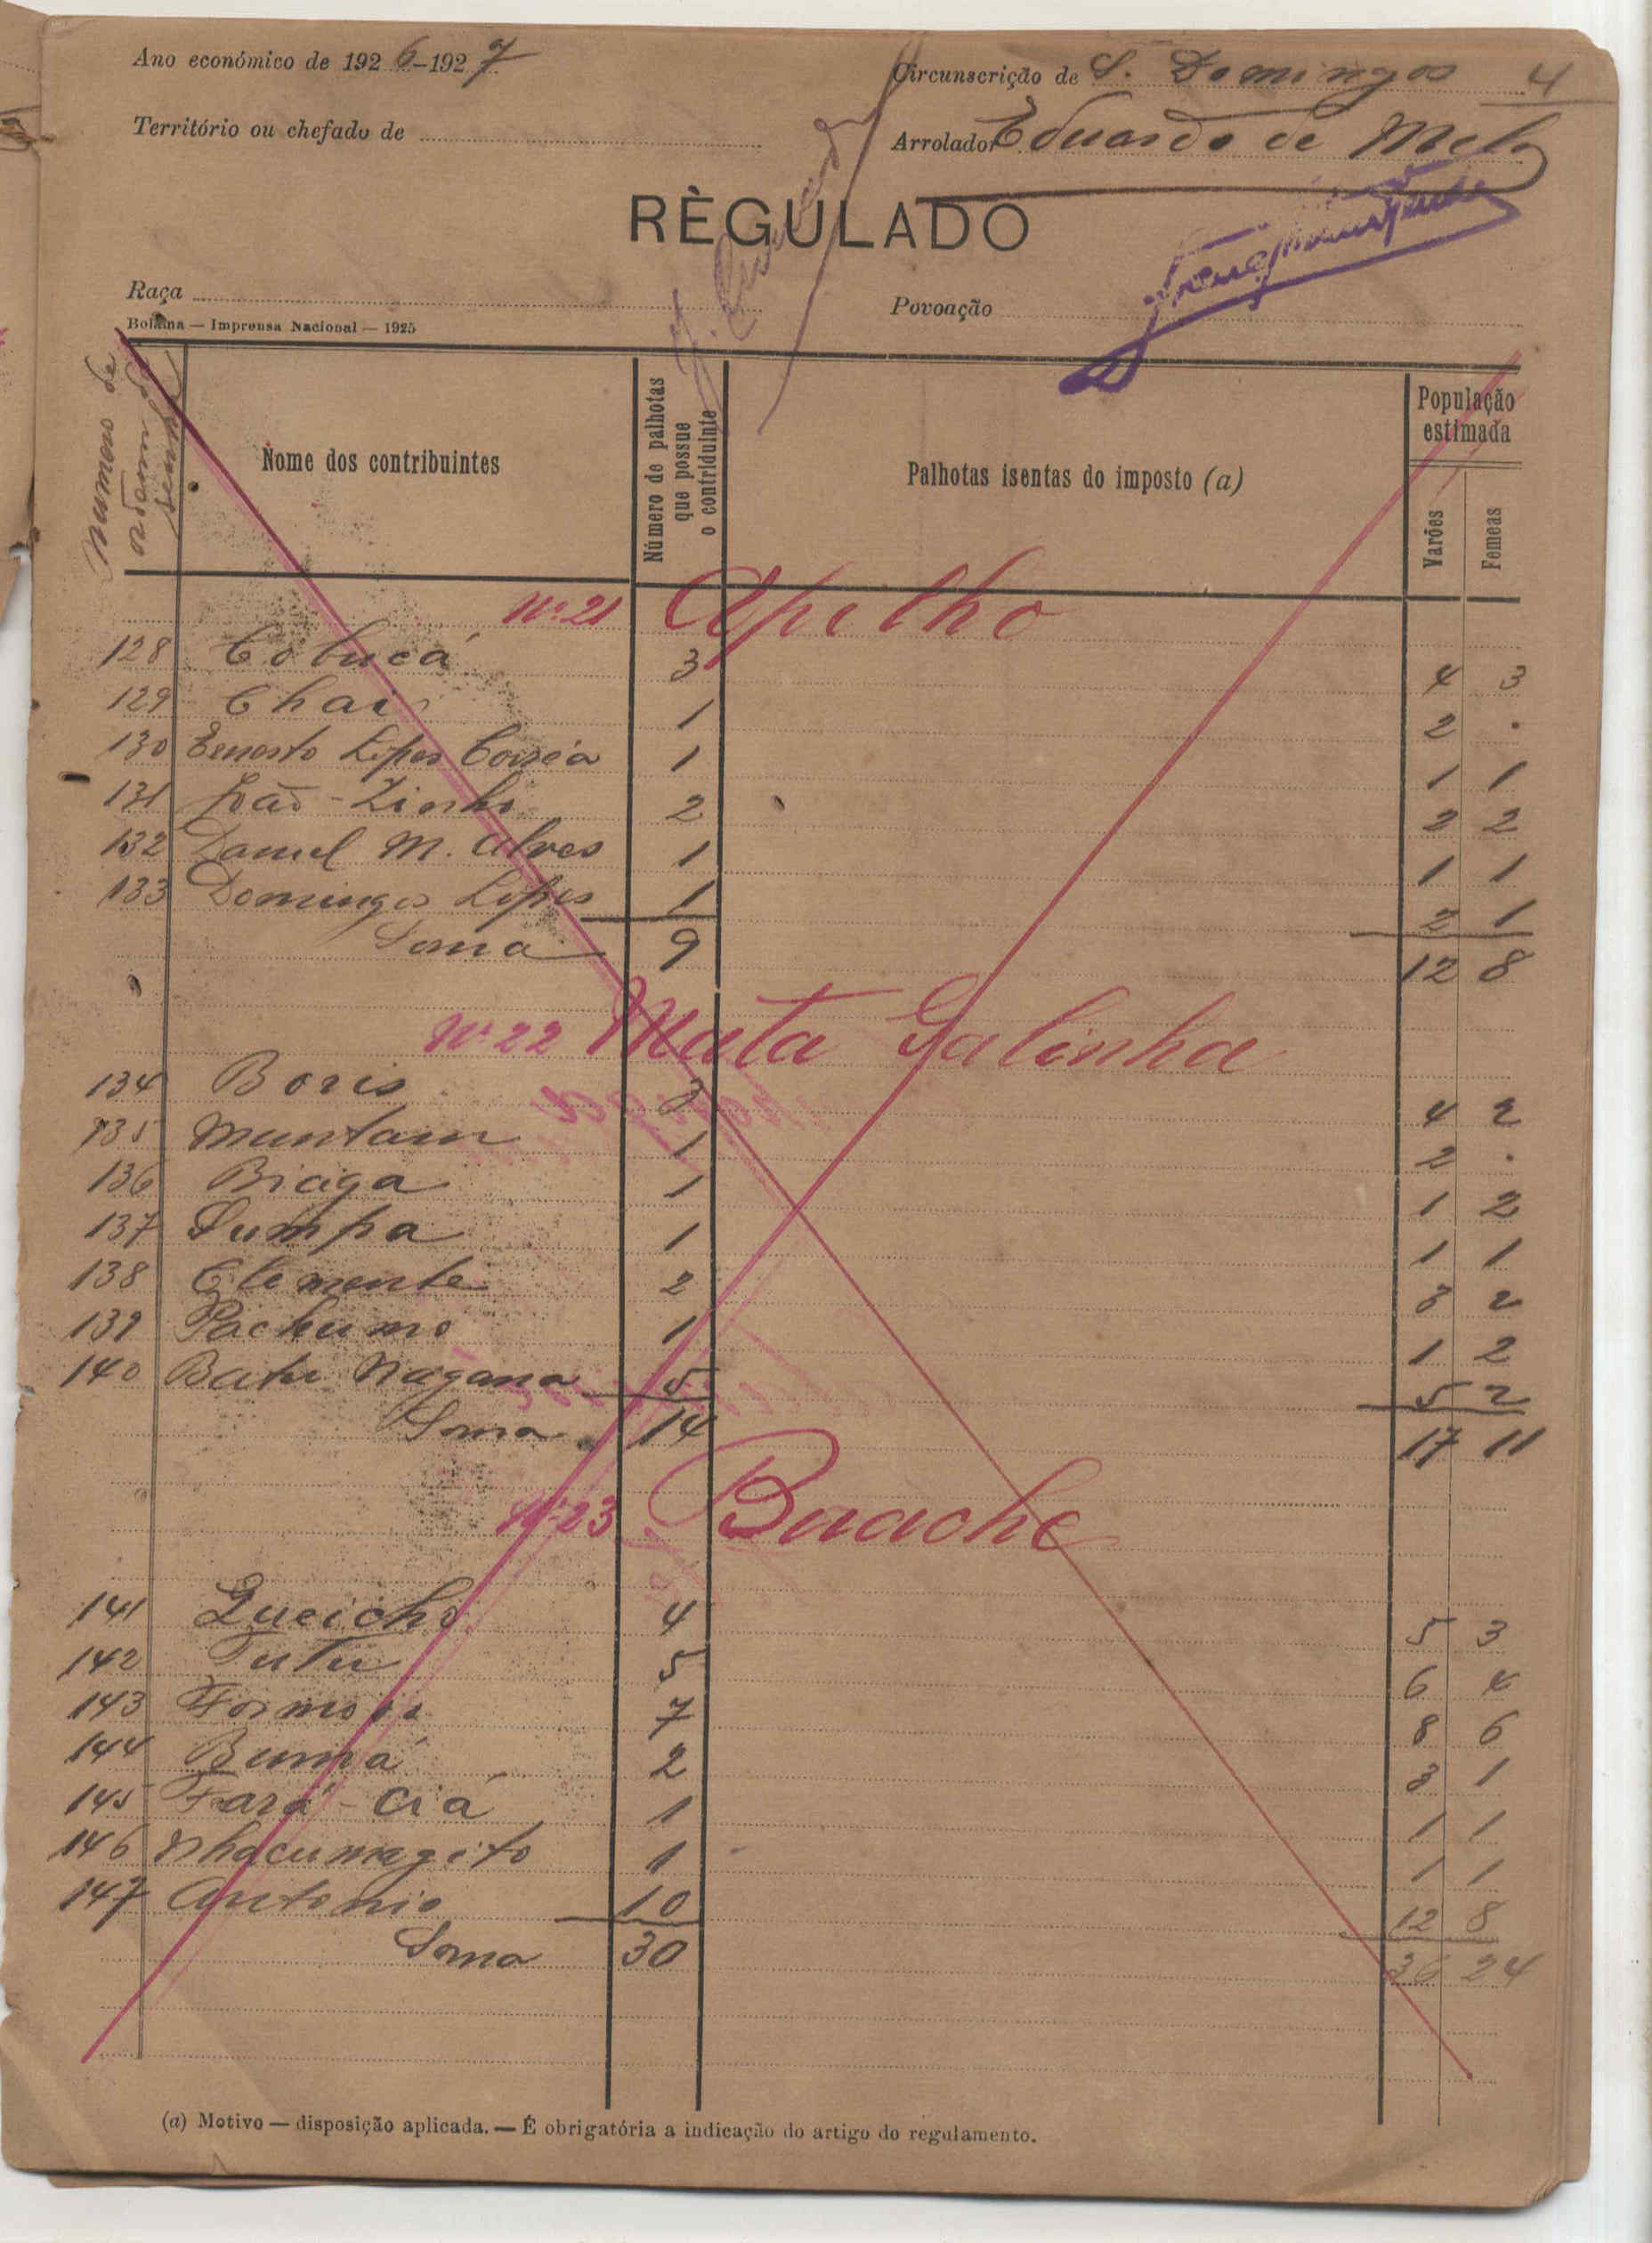 Ano económico de 1926-1927
Circunscrição de S. Domingos 4
Território ou chefado de
Arrolador Eduardo de Melo
RÈGULADO
Raça
Povoação
Bolama — Imprensa Nacional — 1925
Numeros de ordem
Nome dos contribuintes
Número de palhotas que possue o contriduinte
Palhotas isentas do imposto (a)
População estimada
Varões
Femeas
Nº 21 Apilho
128 Cobucá 3 4 3
129 Chai 1 2 .
130 Ernesto Lopes Corrêa 1 1 1
131 João-Zinho 2 2 2
132 Daniel M. Alves 1 1 1
133 Domingos Lopes 1 2 1
Soma 9 12 8
Nº 22 Mata Galinha
134 Boris 3 4 2
135 Muntam 1 2 .
136 Biaga 1 1 2
137 Sumpa 1 1 1
138 Clemente 2 3 2
139 Pachumo 1 1 2
140 Batu Nagana 5 5 2
Soma 14 17 11
Nº 23 Buache
141 Queicho 4 5 3
142 Tutu 5 6 4
143 Formosa 7 8 6
144 Bumá 2 3 1
145 Fará-Ciá 1 1 1
146 Nhacumagito 1 1 1
147 Antonio 10 12 8
Soma 30 36 24
(a) Motivo — disposição aplicada. — É obrigatória a indicação do artigo do regulamento.